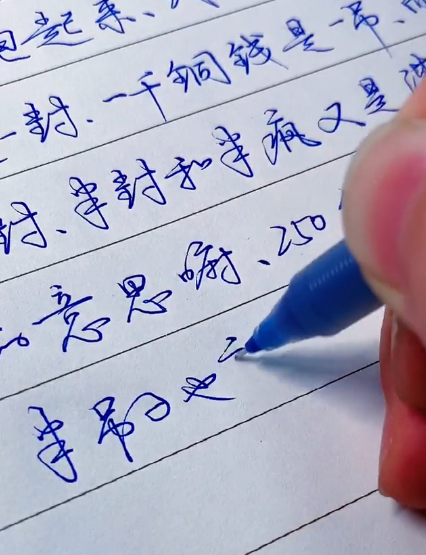 包起来、
一封、一千铜钱是一吊、
封、半封和半疯又是谐
的意思嘛、250
半吊子也